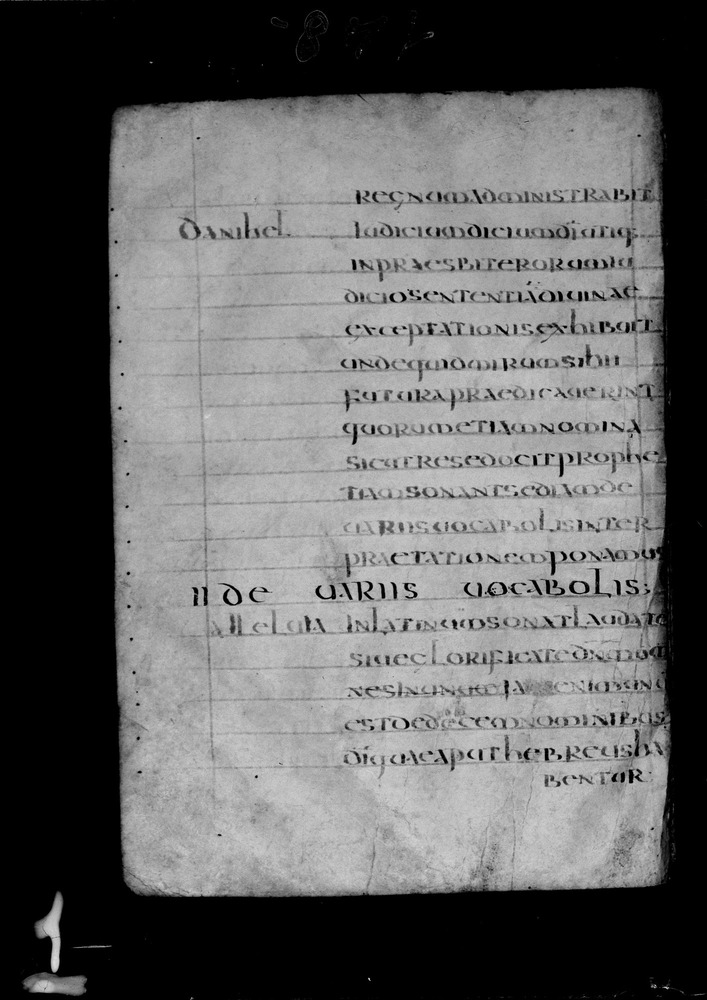 regnum administrabit
danihel iudicium dicium diutiq;
in praesbiterorum iu
dicio sententiā diuinae
exceptationis exhibuit
unde quidmirum si hii
futura praedicauerint
quorum etiam nomina
sicut res edocit prophe
tiam sonant sed iam de
uariis uocabolis inter
praetationem ponamus
II de uariis uocabolis;
alleluia in latinum sonat laudate
siue glorificate dnm om
nes in unum
est de decem nominibus
di quae aput hebreus ha
bentur